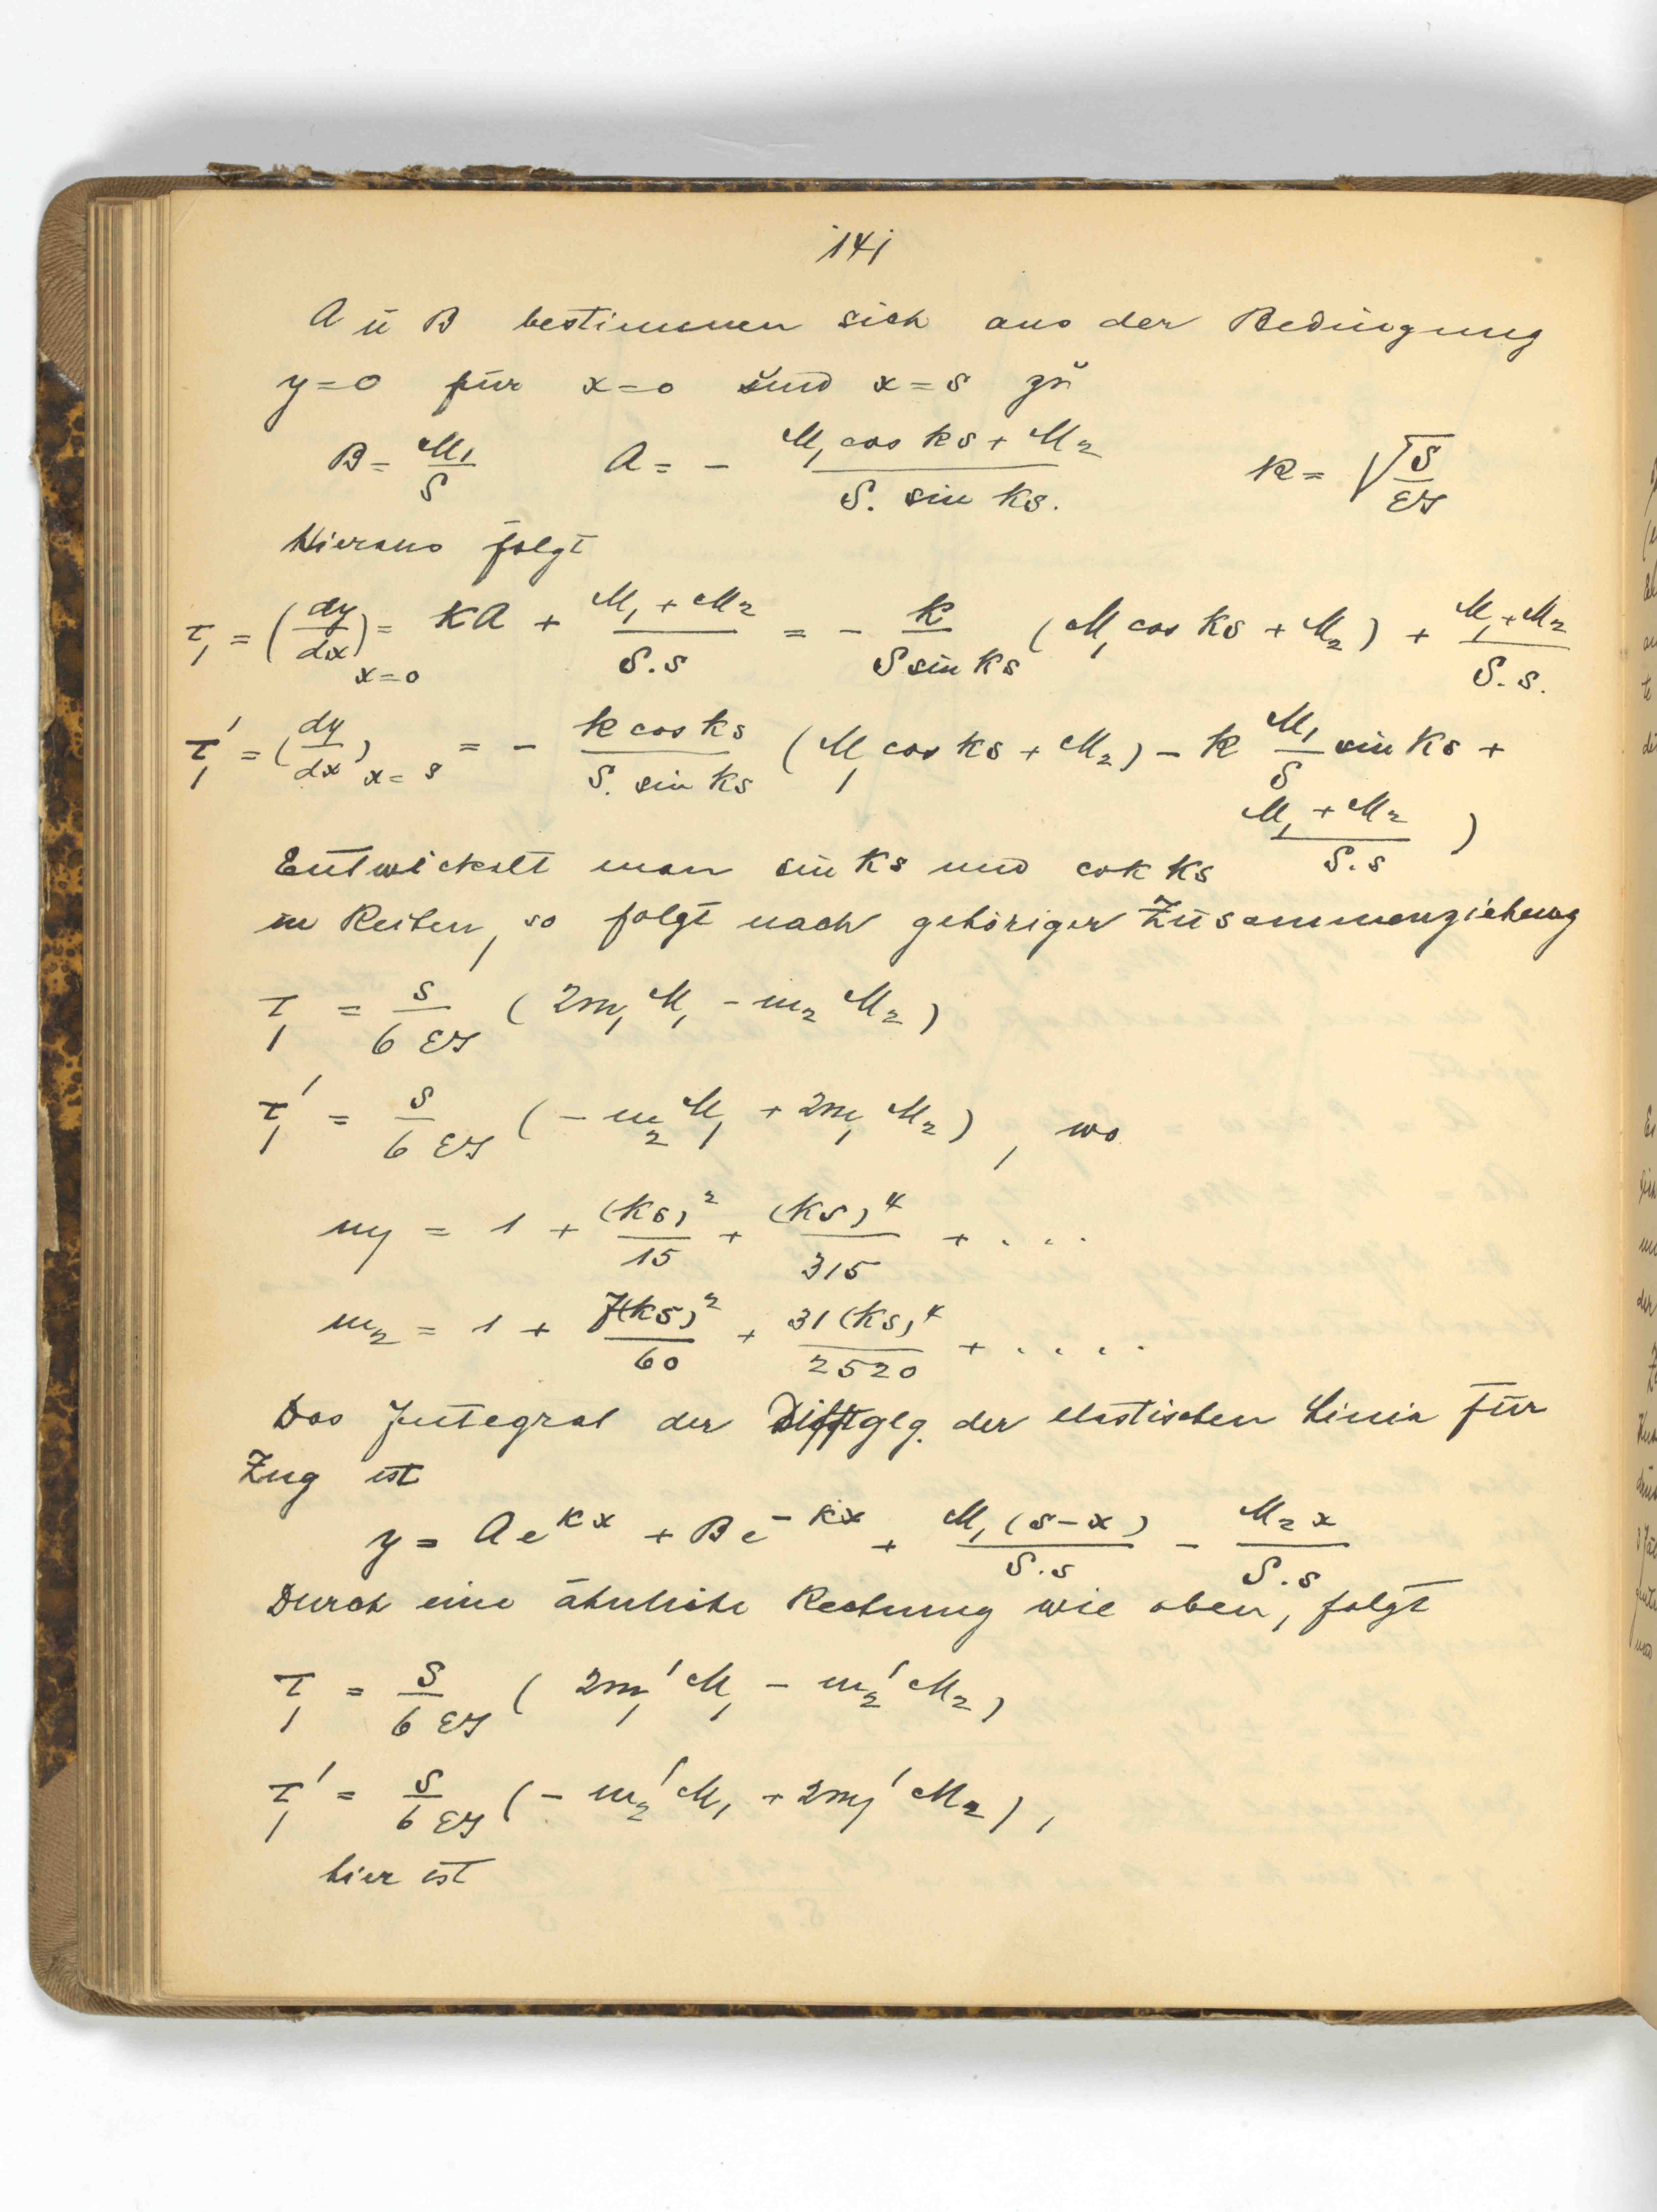 141
A ŭ B bestimmen sich aus der Bedingung
y=0 für x=0 ŭnd x=s zŭ
B = M₁/S A = − (M₁ cos ks + M₂)/(S. sin ks.) k = √(S/EJ)
Hieraus folgt
τ₁ = (dy/dx)ₓ₌₀ = kA + (M₁ + M₂)/(S.s) = − k/(S sin ks) (M₁ cos ks + M₂) + (M₁ + M₂)/(S.s.)
τ₁' = (dy/dx)ₓ₌ₛ = − (k cos ks)/(S. sin ks) (M₁ cos ks + M₂) − k M₁/S sin ks +
(M₁ + M₂)/(S.s) )
Entwickelt man sin ks und cok ks
in Reihen, so folgt nach gehöriger Zusammenziehung
τ₁ = s/(6 EJ) (2m₁ M₁ − m₂ M₂)
τ₁' = s/(6 EJ) (− m₂ M₁ + 2m₁ M₂), wo
m₁ = 1 + (ks)²/15 + (ks)⁴/315 + . . .
m₂ = 1 + 7(ks)²/60 + 31(ks)⁴/2520 + . . . .
Das Integral der Diffglg. der elastischen Linie für
Zug ist
y = A e^{kx} + B e^{−kx} + M₁(s−x)/(S.s) − M₂x/(S.s)
Durch eine ähnliche Rechnung wie oben, folgt
τ₁ = s/(6 EJ) (2m₁' M₁ − m₂' M₂)
τ₁' = s/(6 EJ) (− m₂' M₁ + 2m₁' M₂),
hier ist